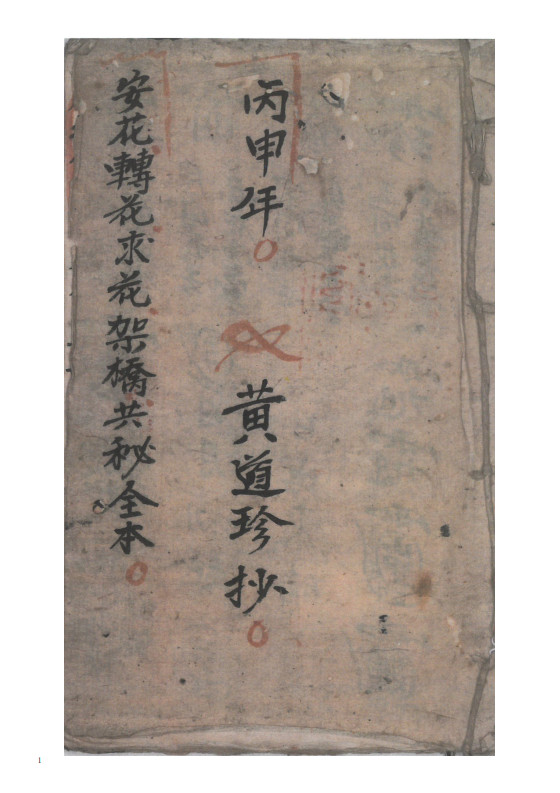 丙申年
黄道珍抄
安花轉花求花架橋共秘全本
1